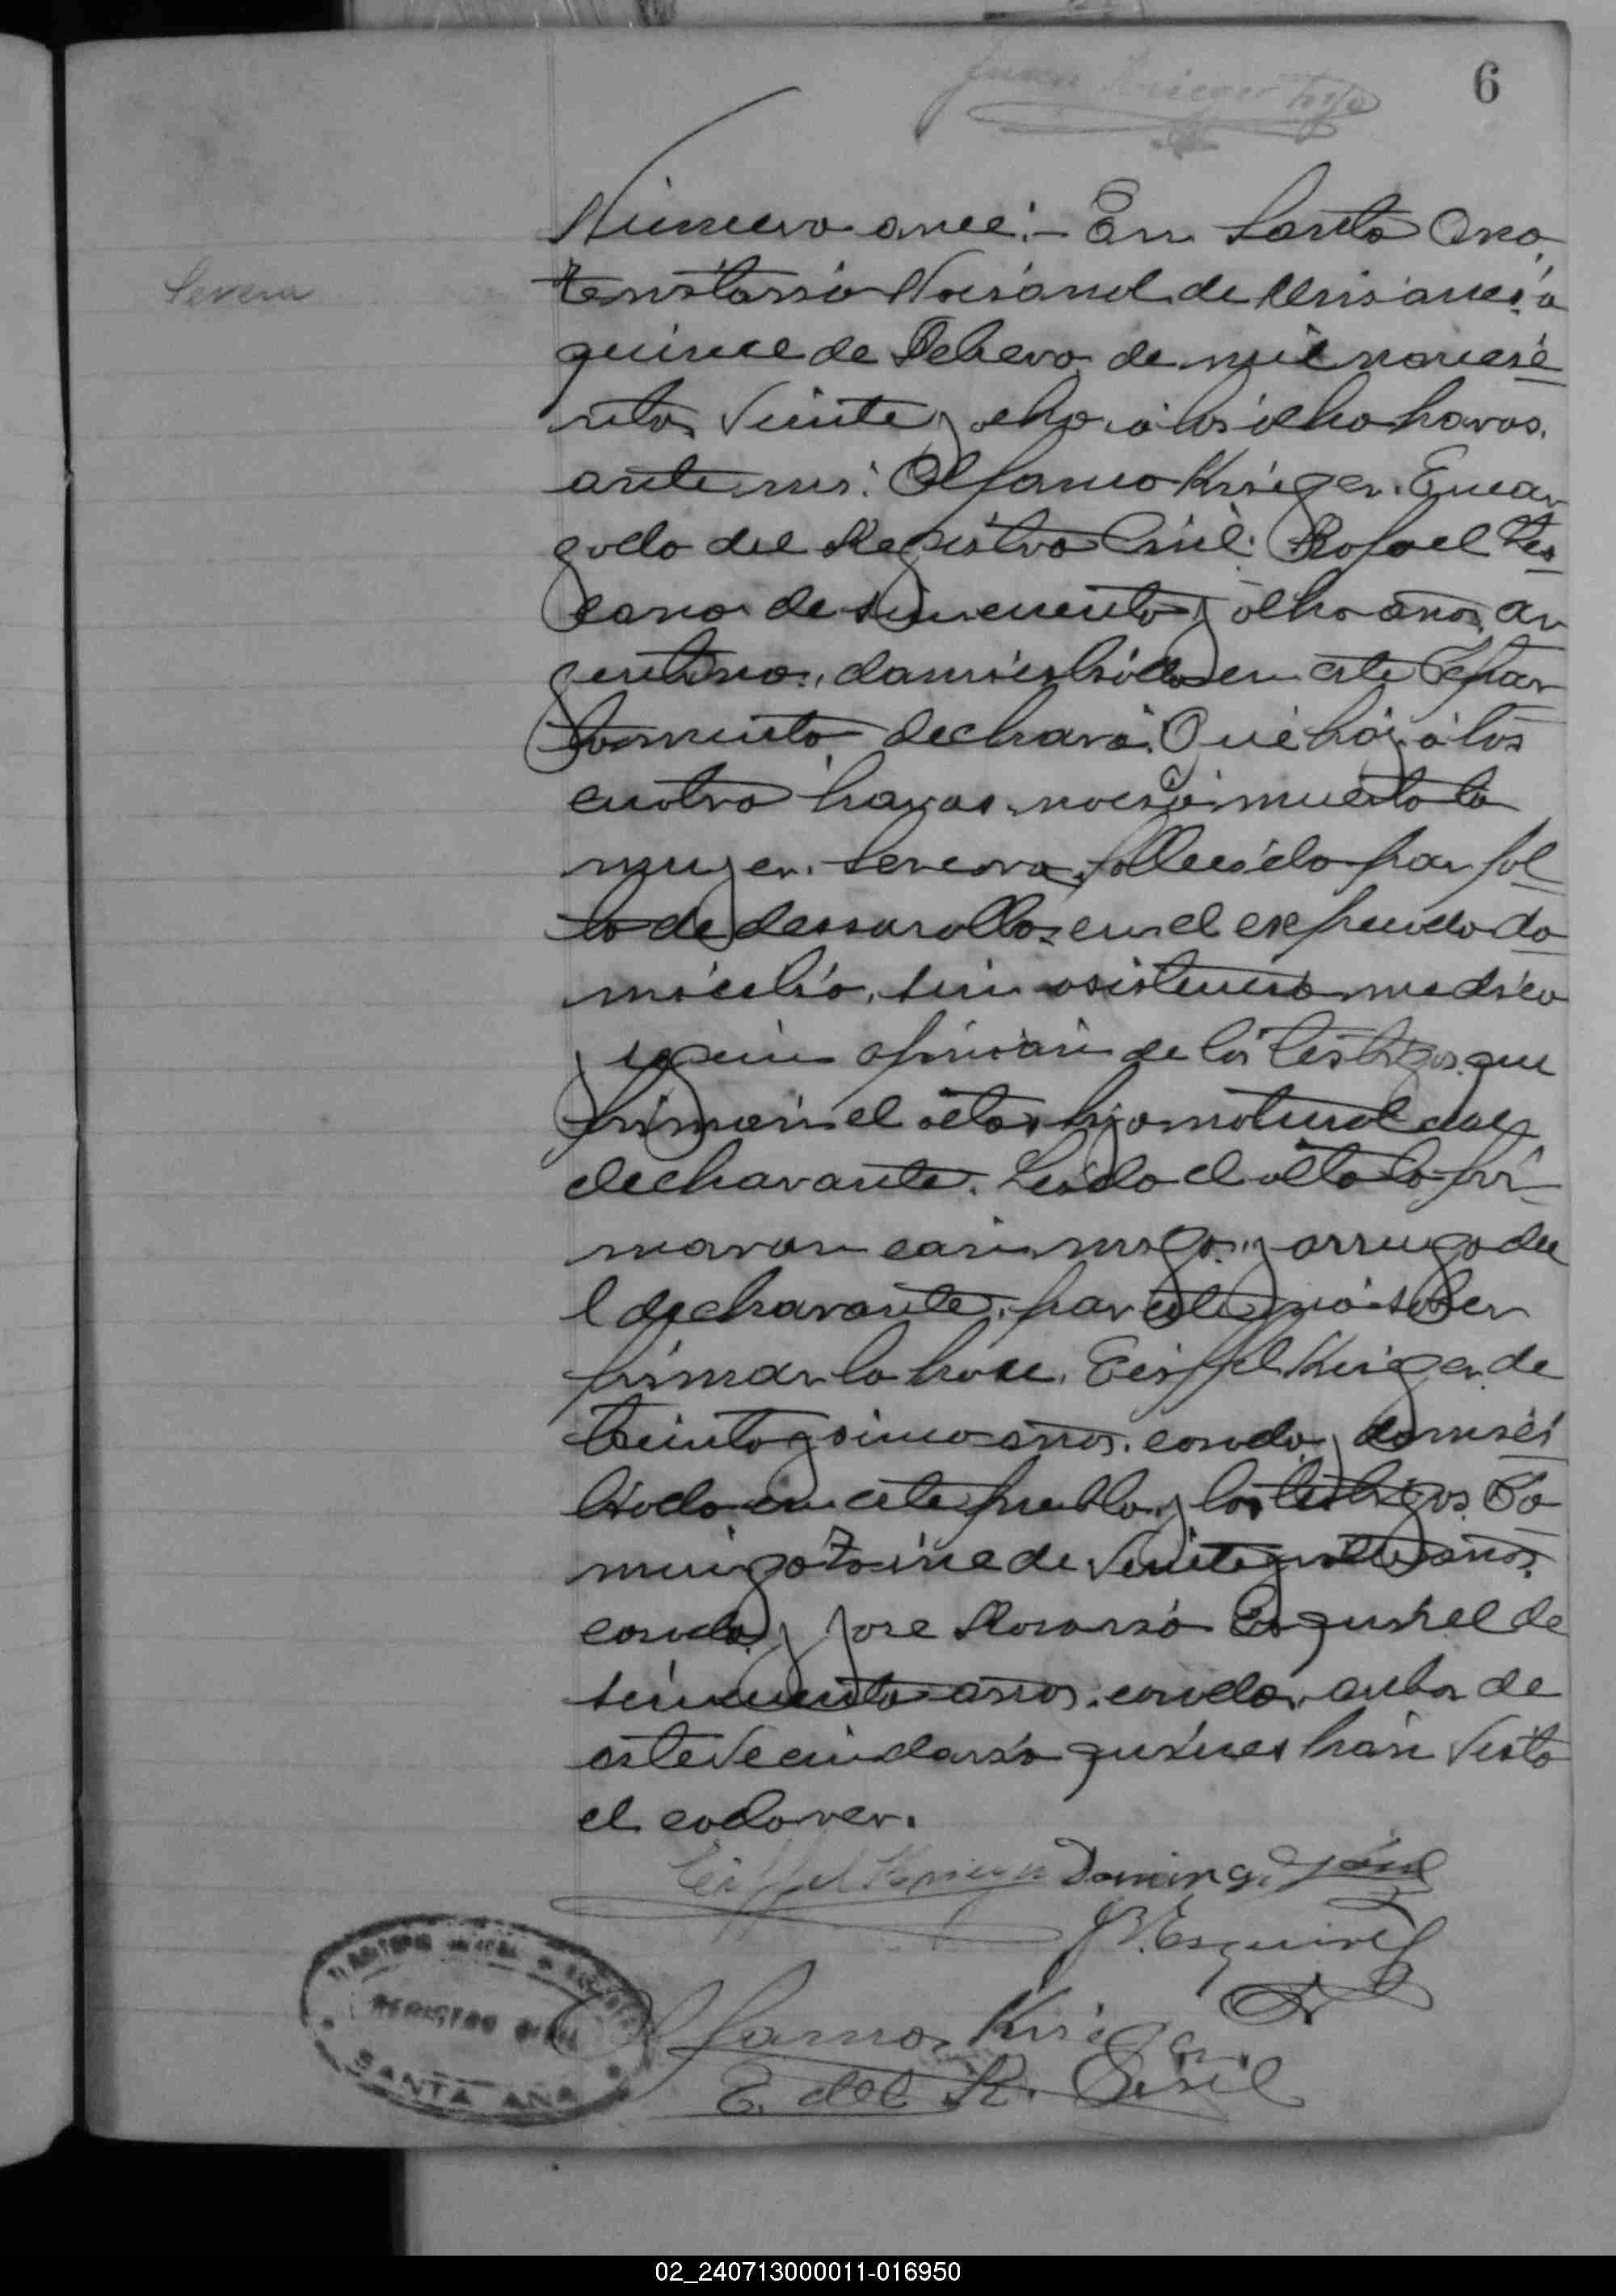 6
Severa
Numero once:- En Santa Ana,
Territorio Nacional de Misiones, a
quince de Febrero de mil novesie
ntos Veinte y ocho, a las ocho horas.
ante mi: Alfonso Kriger. Encar
gado del Registro Civil: Rafael Les
cano de sincuenta y ocho años, ar
gentino, domiciliado en este Depar
tamento declaró: Que hoy a las
cuatro horas nació muerta la
mujer Severa, fallecida por fal
ta de desarrollo, en el expresado do
micilio, sin asistencia medica
y segun opinion de los testigos que
firman el acta, hija natural del
declarante. Leida el acta la fir
maron conmigo, y a ruego de
l declarante, por este no saber
firmar lo hace, Eiffel Kriger de
treinta y sinco años, casado, domici
liado en este pueblo, y los testigos Do
mingo de Veinte y siete años,
casado, y Jose Esquivel de
sincuenta años, casado, ambos de
este Vecindario quienes han Visto
el cadaver.
Eiffel Kriger Domingo
J. R. Esquivel
Alfonso Kriger
E. del R. Civil
REGISTRO CIVIL
SANTA ANA
02_240713000011-016950